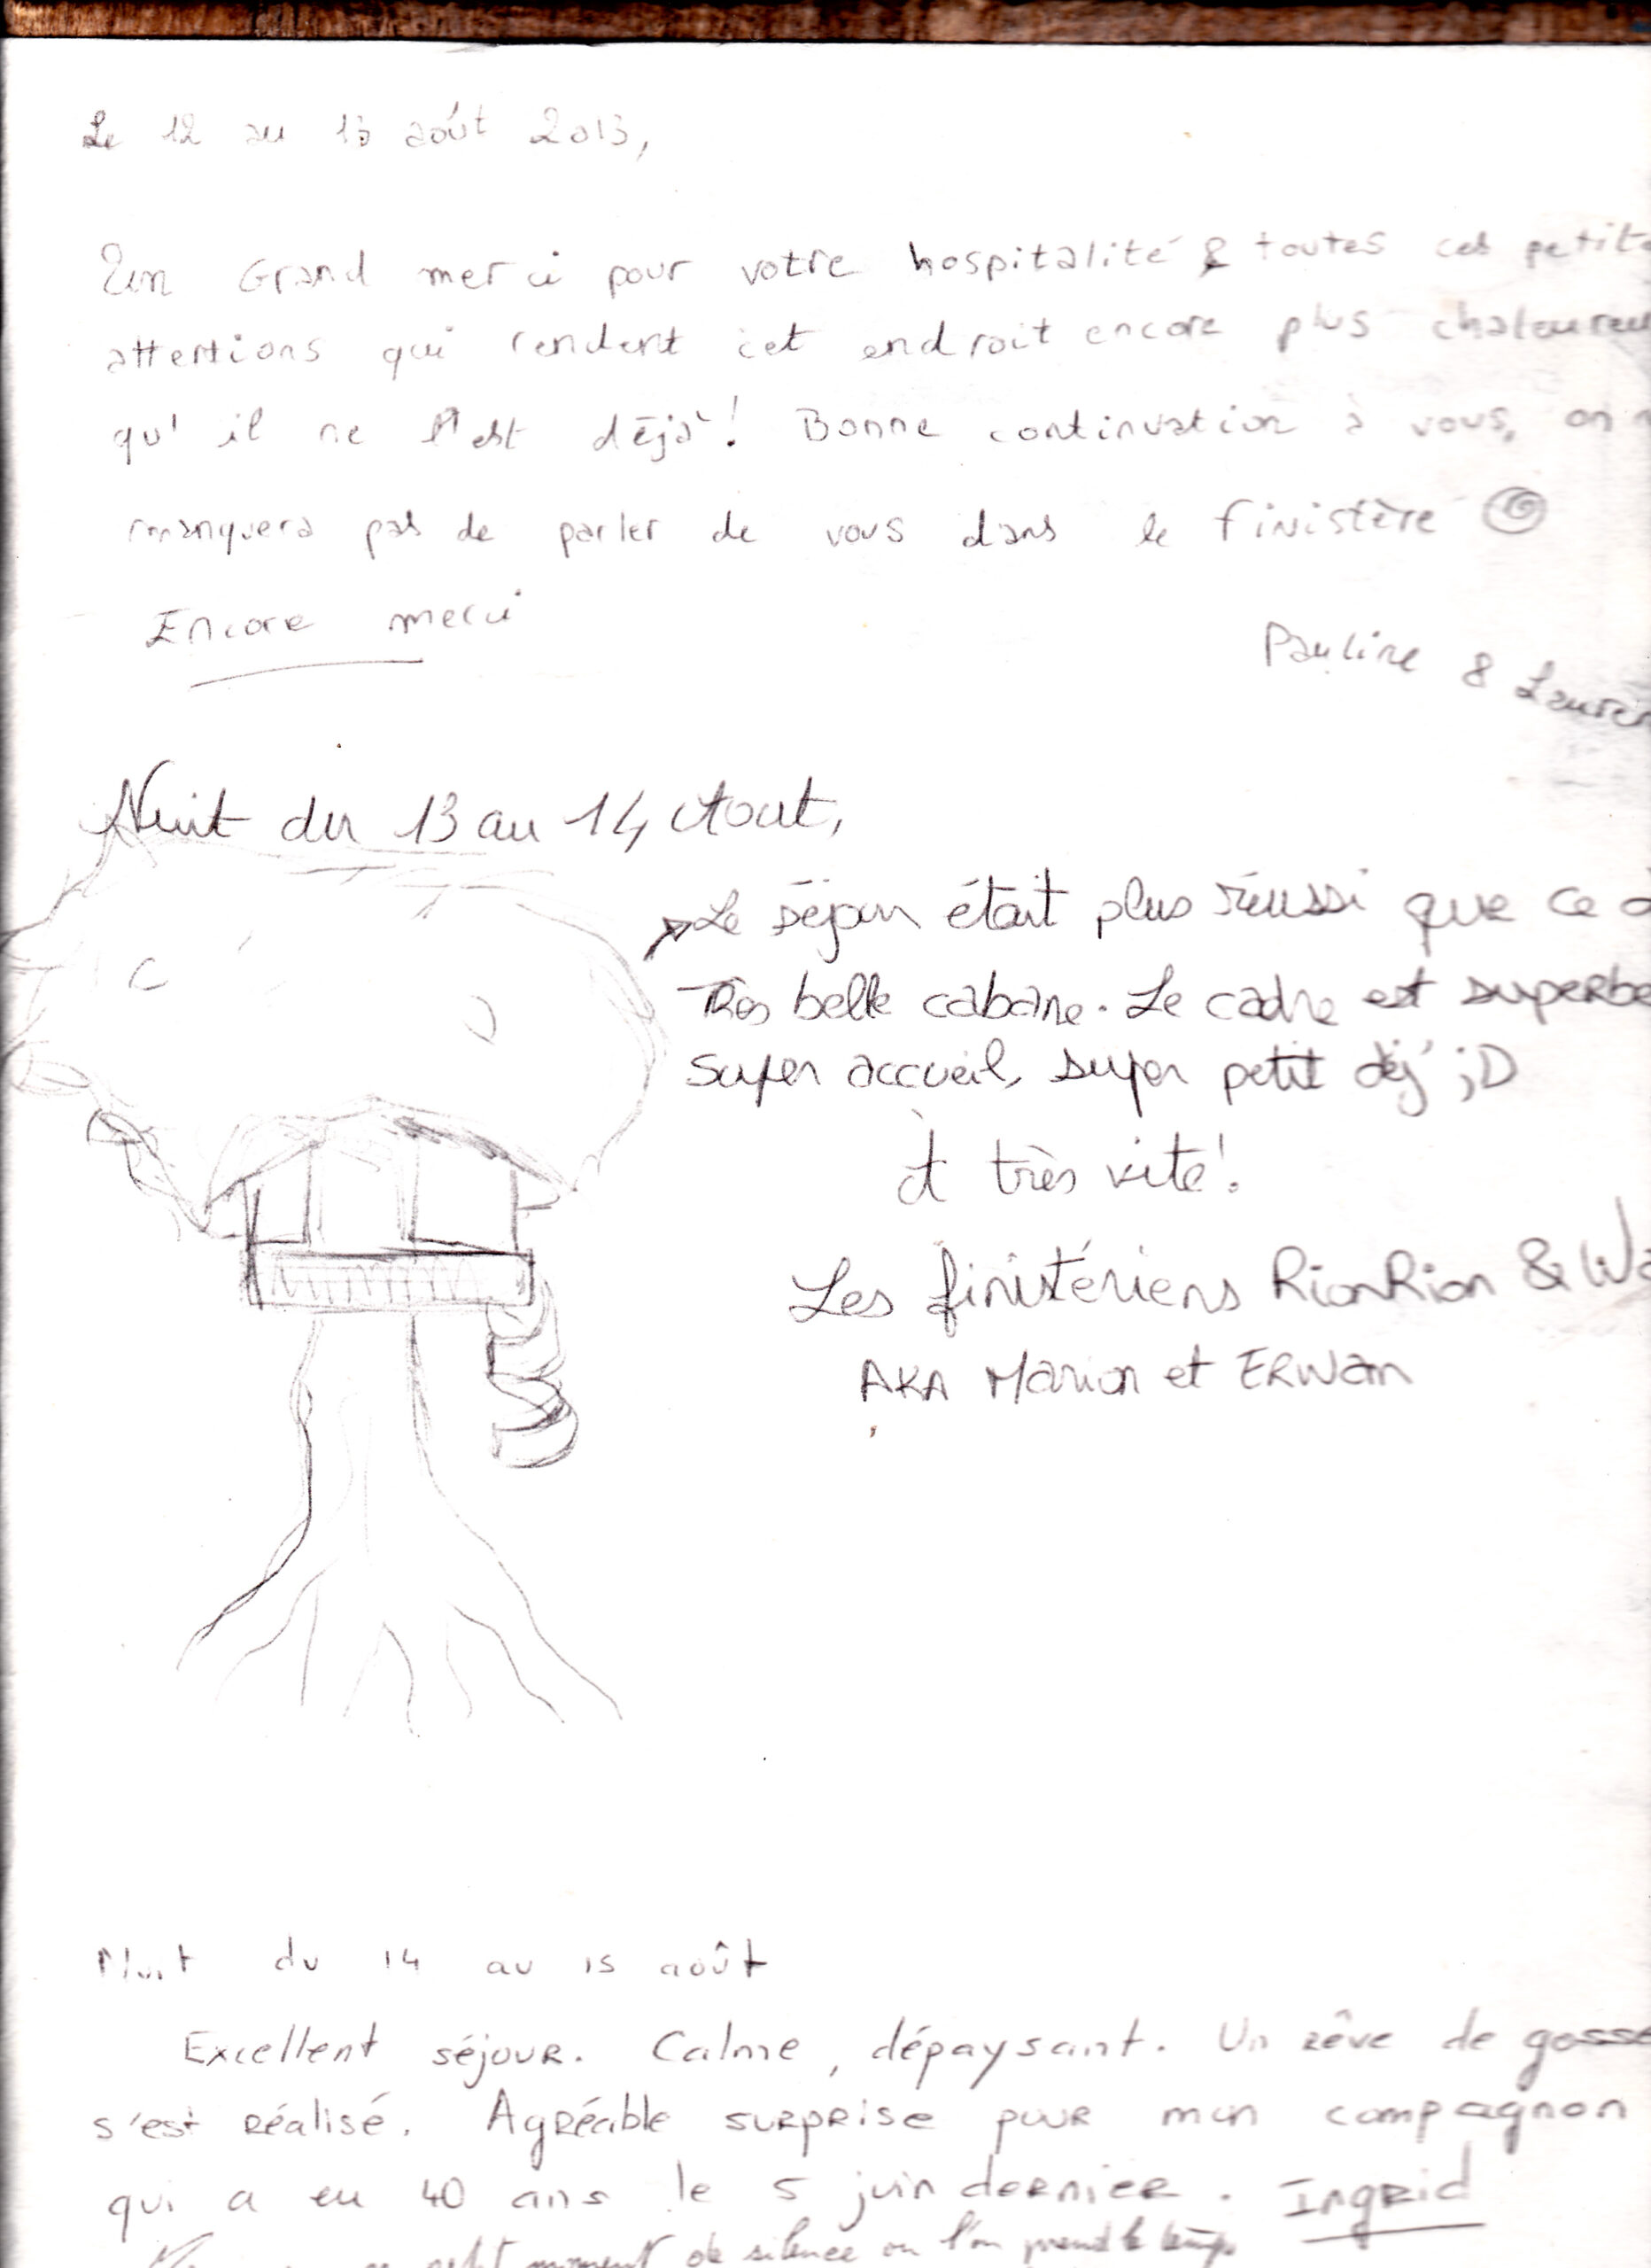 Le 12 au 13 août 2013,
Un Grand merci pour votre hospitalité & toutes ces petit
attentions qui rendent cet endroit encore plus chaleureu
qu'il ne l'est déjà! Bonne continuation à vous, on
manquera pas de parler de vous dans le finistère
Encore merci
Pauline & Lauren
Nuit du 13 au 14 Aout,
Le séjour était plus réussi que ce
Très belle cabane. Le cadre est superbe
Super accueil, super petit déj' ;D
A très vite!
Les finistériens RionRion & Wa
AKA Marion et ERWan
Nuit du 14 au 15 août
Excellent séjour. Calme, dépaysant. Un rêve de gosse
s'est réalisé. Agréable surprise pour mon compagnon
qui a eu 40 ans le 5 juin dernier. Ingrid
petit moment de silence ou l'on prend le temps